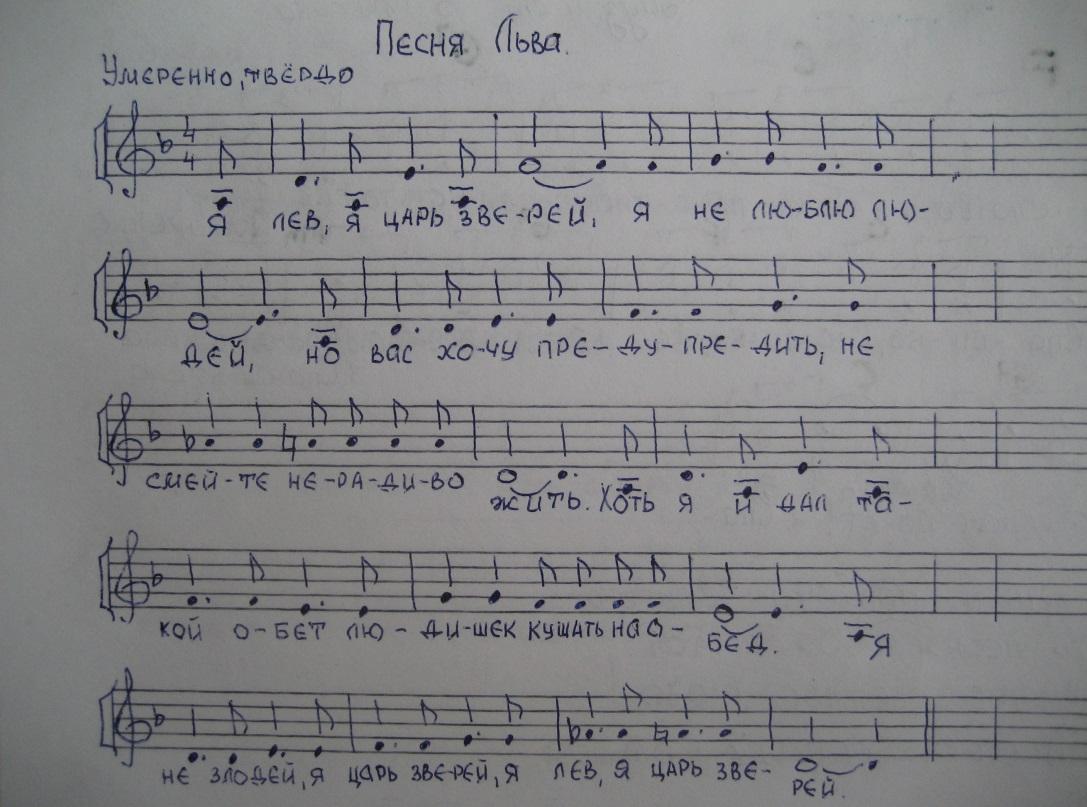 Песня Льва.
Умеренно, твёрдо
4
4
Я ЛЕВ, Я ЦАРЬ ЗВЕ-РЕЙ, Я НЕ ЛЮ-БЛЮ ЛЮ-
ДЕЙ, НО ВАС ХО-ЧУ ПРЕ-ДУ-ПРЕ-ДИТЬ, НЕ
СМЕЙ-ТЕ НЕ-РА-ДИ-ВО ЖИТЬ. ХОТЬ Я И ДАЛ ТА-
КОЙ О-БЕТ ЛЮ-ДИ-ШЕК КУШАТЬ НА О-БЕД. Я
НЕ ЗЛОДЕЙ, Я ЦАРЬ ЗВЕ-РЕЙ, Я ЛЕВ, Я ЦАРЬ ЗВЕ-РЕЙ.